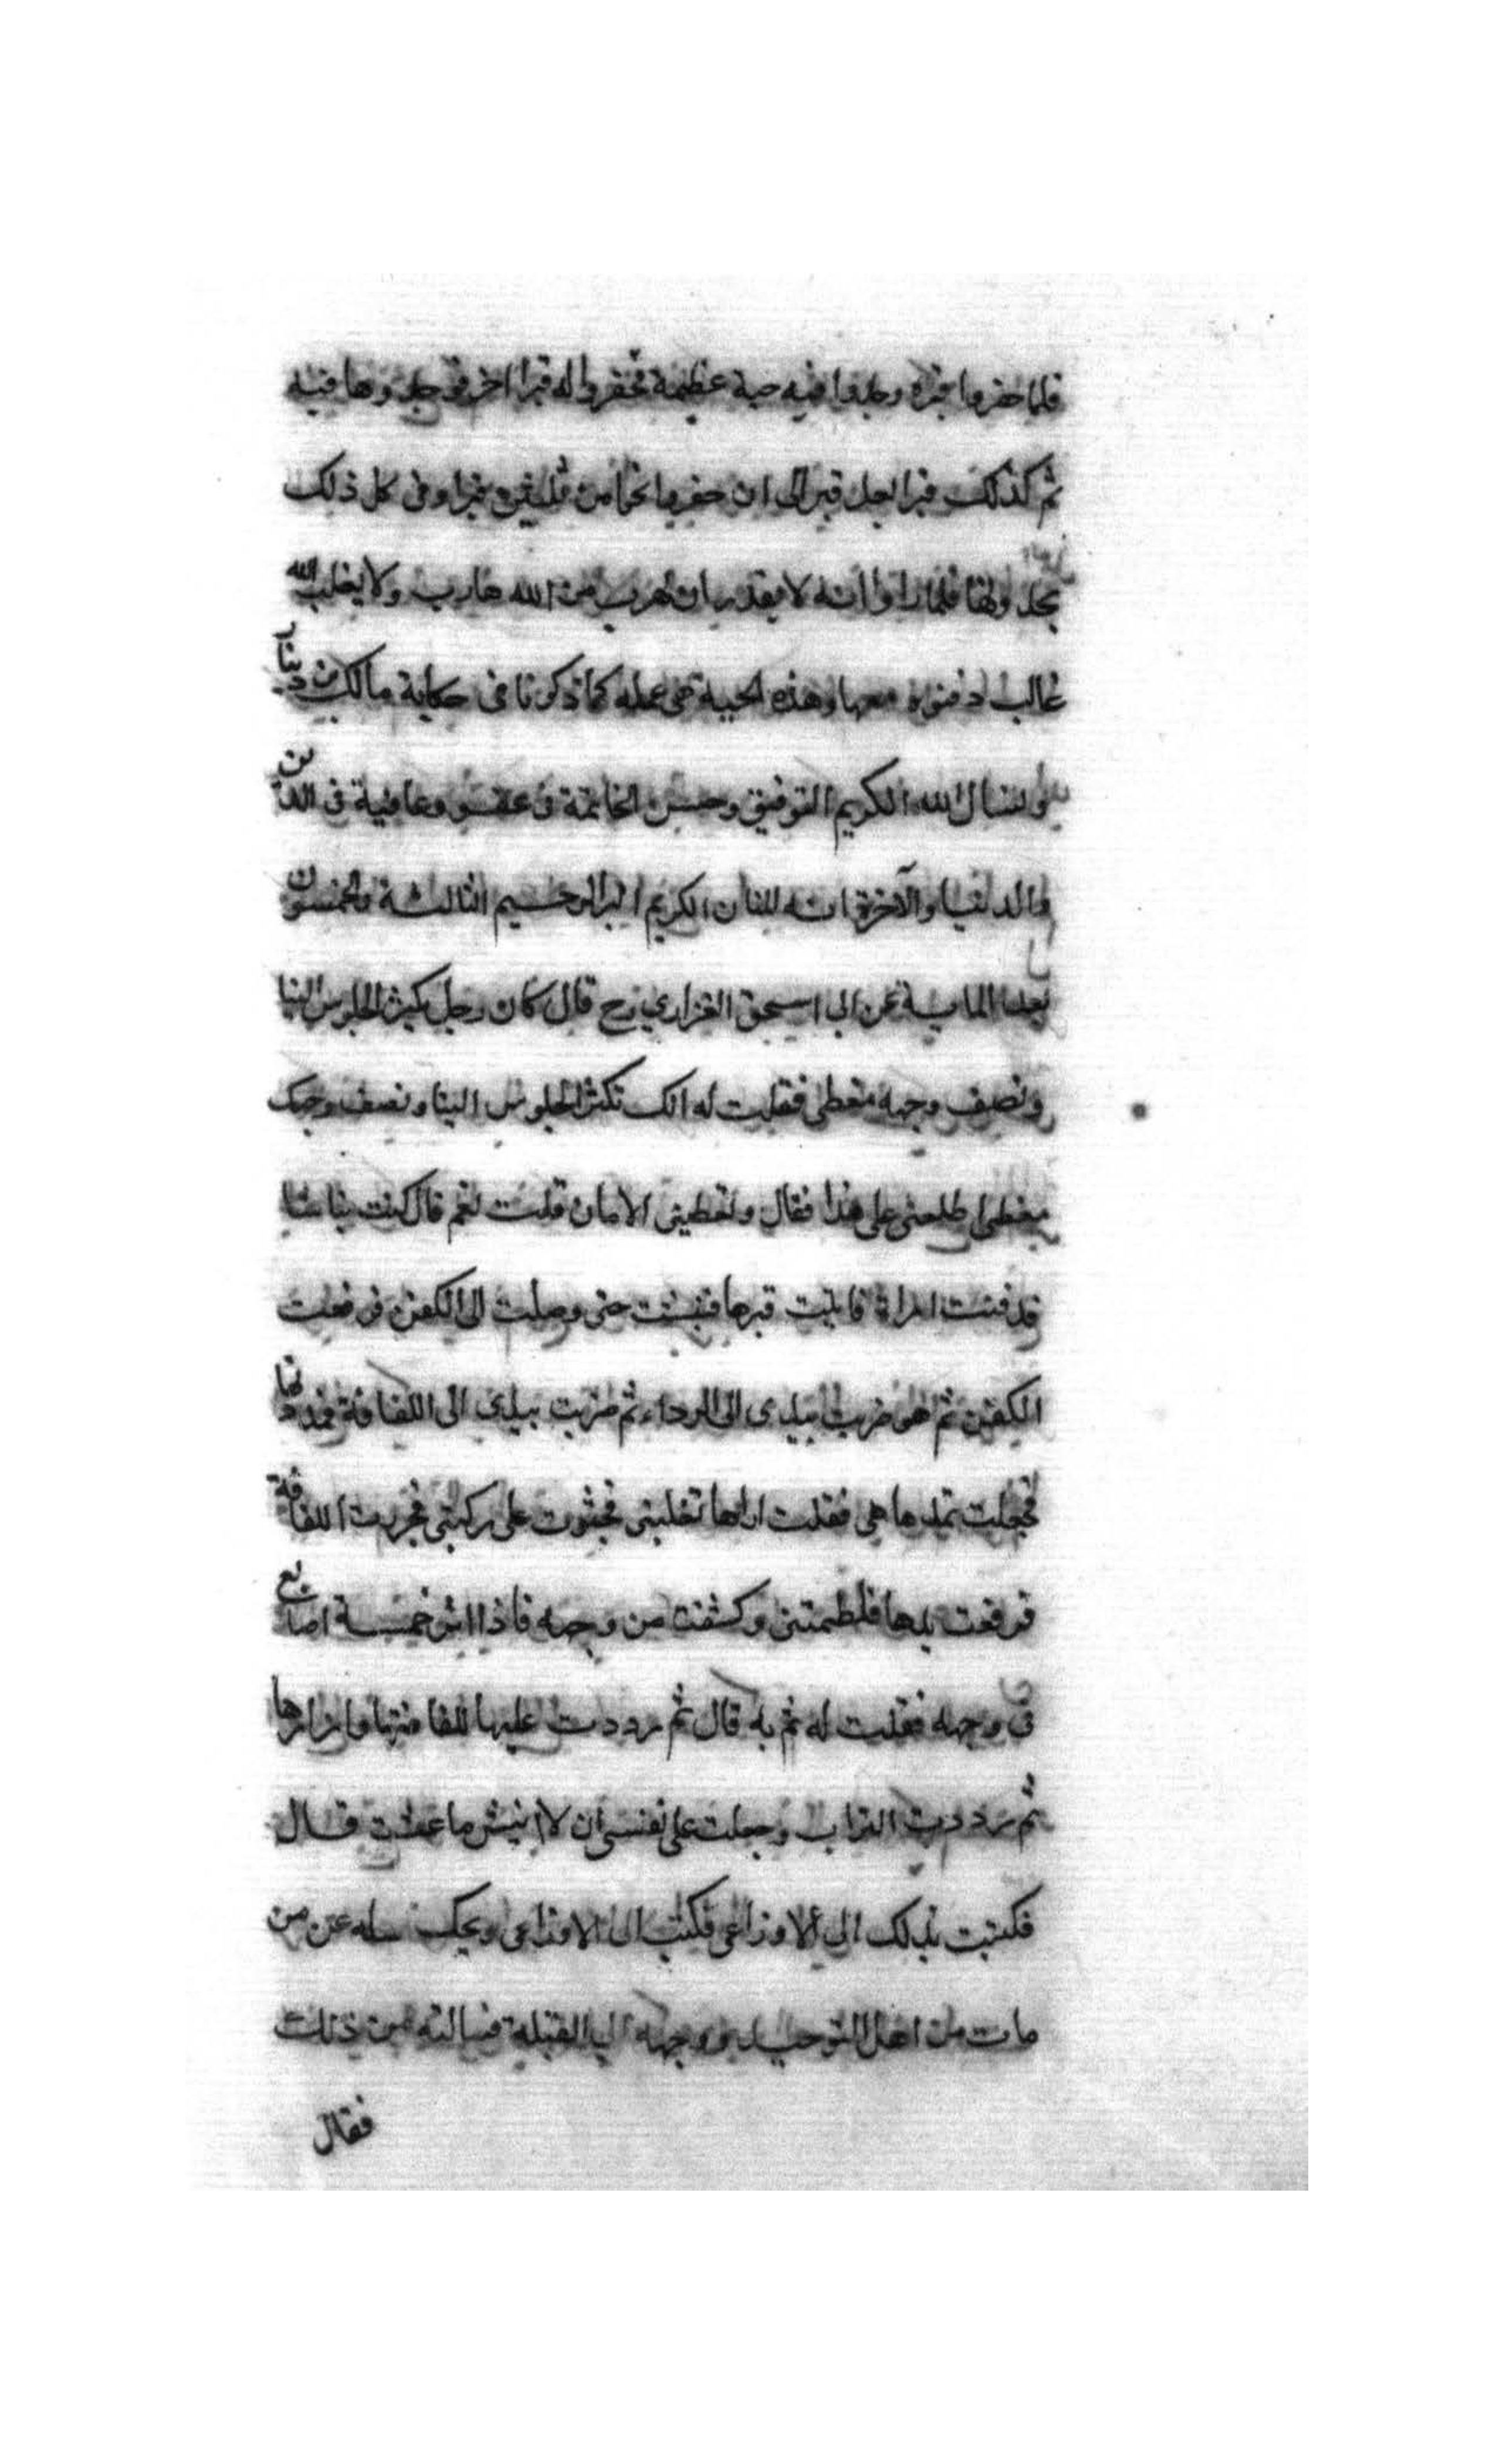 فلما حفروا قبره وجدوا فيه حية عظيمة فحفروا له قبرا اخر فوجدوها فيه
ثم كذلك قبرا بعد قبر الى ان حفروا نحوا من ثلثين قبرا وفى كل ذلك
يجدونها فلما راوا انه لا يقدر ان يهرب من الله هارب ولا يغلب الله
غالب دفنوه معها وهذه الحية هى عمله كما ذكرنا فى حكاية مالك بن دينار
ولنسال الله الكريم التوفيق وحسن الخاتمة فى عفو وعافية فى الدين
والدنيا والآخرة انه المنان الكريم البر الرحيم الثالثة والخمسون
بعد الماية عن ابى اسحق الفزارى رح قال كان رجل يكثر الجلوس الينا
ونصف وجهه مغطى فقلت له انك تكثر الجلوس الينا ونصف وجهك
مغطى اطلعنى على هذا فقال وتعطينى الامان قلت نعم قال كنت نباشا
فدفنت امراة فاتيت قبرها فنبشت حتى وصلت الى الكفن فرفعت
الكفن ثم ضربت بيدى الى الرداء ثم ضربت بيدى الى اللفافة فمددتها
فجعلت تمدها هى فقلت اتراها تغلبنى فجثوت على ركبتى فجررت اللفافة
فرفعت يدها فلطمتنى وكشفت من وجهه فاذا اثر خمسة اصابع
فى وجهه فقلت له ثم به قال ثم رددت عليها لفافتها وازارها
ثم رددت التراب وجعلت على نفسى ان لا انبش ما عشت قال
فكتبت بذلك الى الاوزاعى فكتب الى الاوزاعى ويحك سله عن من
مات من اهل التوحيد ووجهه الى القبلة فسالته عن ذلك
فقال